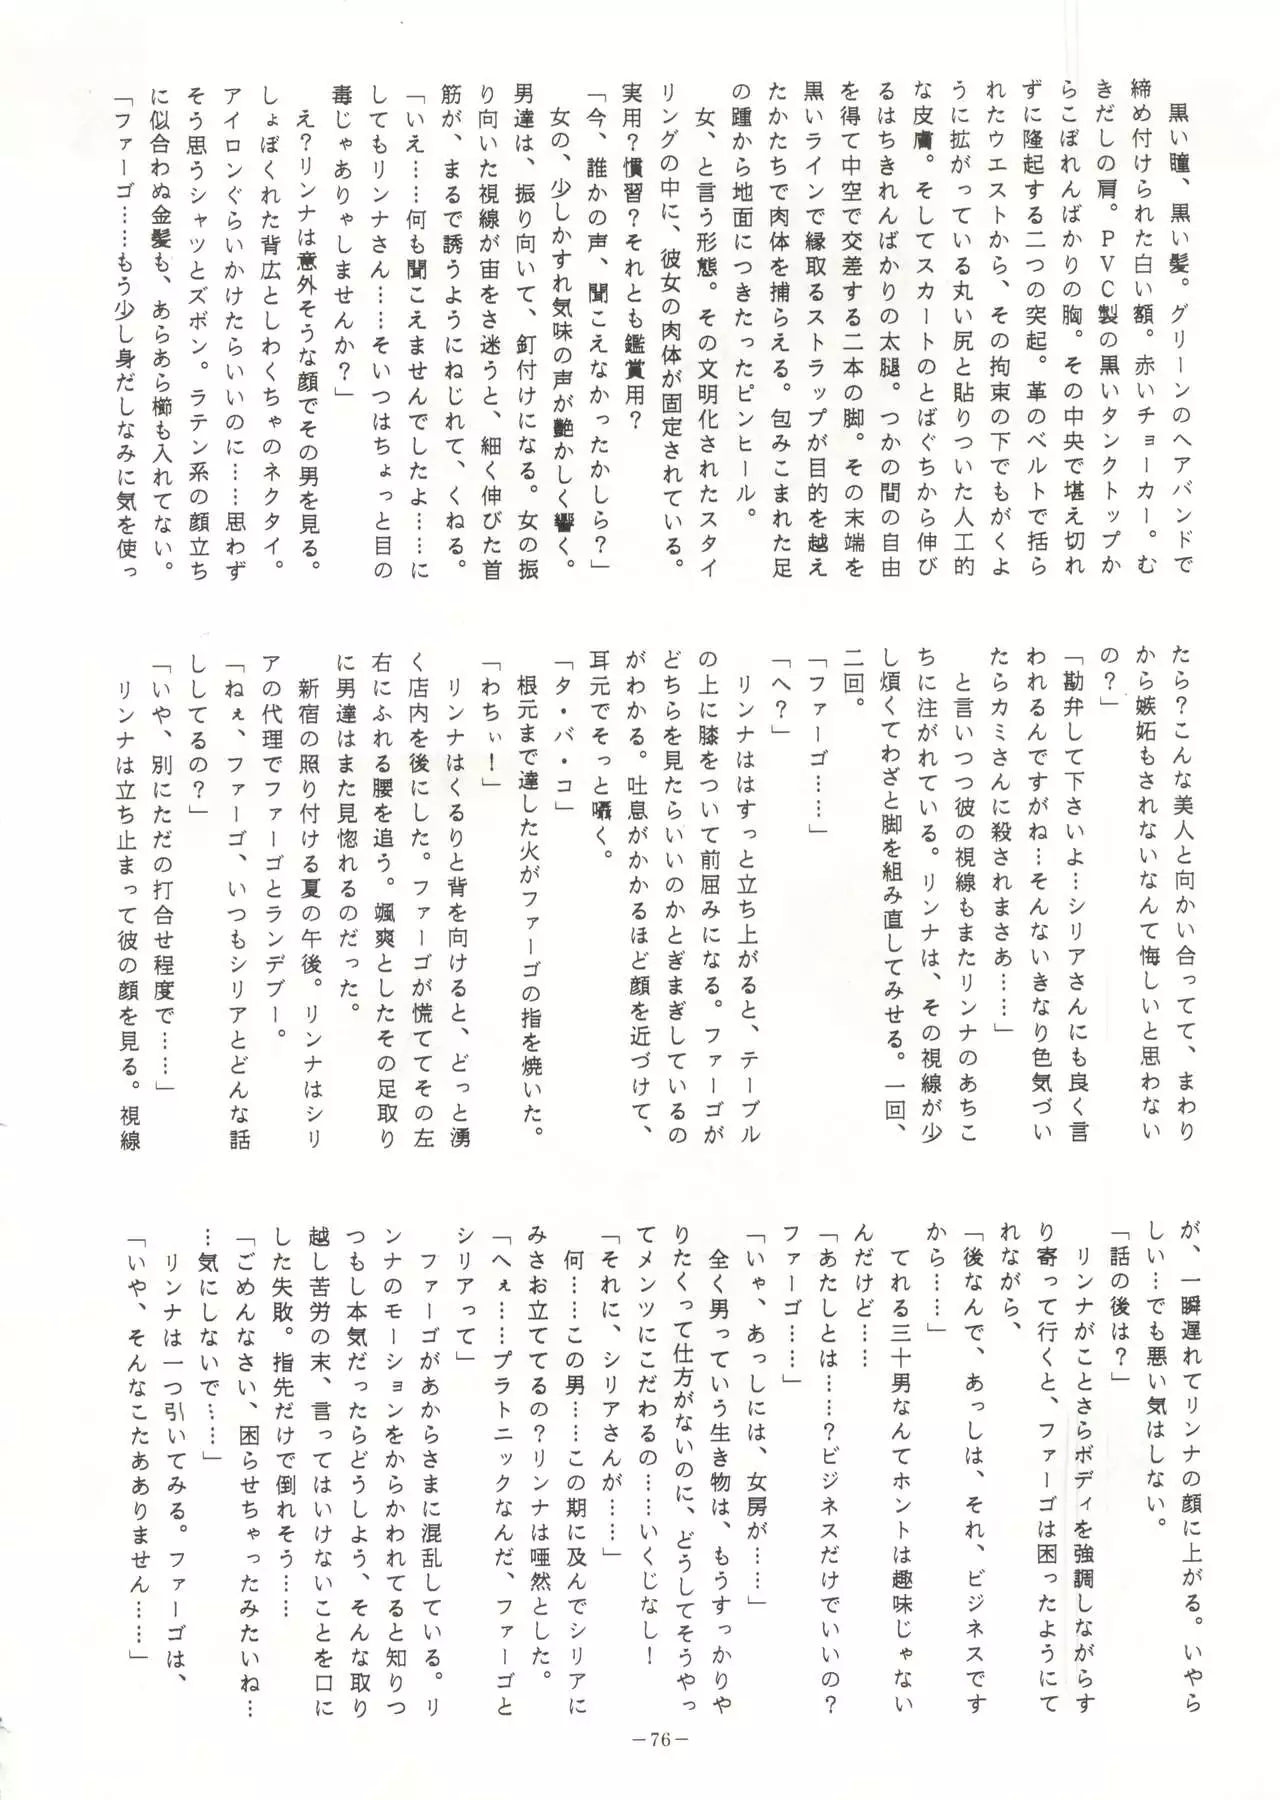 黒い瞳、黒い髪。グリーンのヘアバンドで
締め付けられた白い額。赤いチョーカー。む
きだしの肩。ＰＶＣ製の黒いタンクトップか
らこぼれんばかりの胸。その中央で堪え切れ
ずに隆起する二つの突起。革のベルトで括ら
れたウエストから、その拘束の下でもがくよ
うに拡がっている丸い尻と貼りついた人工的
な皮膚。そしてスカートのとばぐちから伸び
るはちきれんばかりの太腿。つかの間の自由
を得て中空で交差する二本の脚。その末端を
黒いラインで縁取るストラップが目的を越え
たかたちで肉体を捕らえる。包みこまれた足
の踵から地面につきたったピンヒール。
　女、と言う形態。その文明化されたスタイ
リングの中に、彼女の肉体が固定されている。
実用？慣習？それとも鑑賞用？
「今、誰かの声、聞こえなかったかしら？」
　女の、少しかすれ気味の声が艶かしく響く。
男達は、振り向いて、釘付けになる。女の振
り向いた視線が宙をさ迷うと、細く伸びた首
筋が、まるで誘うようにねじれて、くねる。
「いえ……何も聞こえませんでしたよ……に
してもリンナさん……そいつはちょっと目の
毒じゃありゃしませんか？」
　え？リンナは意外そうな顔でその男を見る。
しょぼくれた背広としわくちゃのネクタイ。
アイロンぐらいかけたらいいのに……思わず
そう思うシャツとズボン。ラテン系の顔立ち
に似合わぬ金髪も、あらあら櫛も入れてない。
「ファーゴ……もう少し身だしなみに気を使っ
たら？こんな美人と向かい合ってて、まわり
から嫉妬もされないなんて悔しいと思わない
の？」
「勘弁して下さいよ…シリアさんにも良く言
われるんですがね…そんないきなり色気づい
たらカミさんに殺されまさあ……」
　と言いつつ彼の視線もまたリンナのあちこ
ちに注がれている。リンナは、その視線が少
し煩くてわざと脚を組み直してみせる。一回、
二回。
「ファーゴ……」
「へ？」
　リンナはすっと立ち上がると、テーブル
の上に膝をついて前屈みになる。ファーゴが
どちらを見たらいいのかとぎまぎしているの
がわかる。吐息がかかるほど顔を近づけて、
耳元でそっと囁く。
「タ・バ・コ」
　根元まで達した火がファーゴの指を焼いた。
「わちぃ！」
　リンナはくるりと背を向けると、どっと湧
く店内を後にした。ファーゴが慌ててその左
右にふれる腰を追う。颯爽としたその足取り
に男達はまた見惚れるのだった。
　新宿の照り付ける夏の午後。リンナはシリ
アの代理でファーゴとランデブー。
「ねぇ、ファーゴ、いつもシリアとどんな話
ししてるの？」
「いや、別にただの打合せ程度で……」
　リンナは立ち止まって彼の顔を見る。視線
が、一瞬遅れてリンナの顔に上がる。いやら
しい…でも悪い気はしない。
「話の後は？」
　リンナがことさらボディを強調しながらす
り寄って行くと、ファーゴは困ったようにて
れながら、
「後なんで、あっしは、それ、ビジネスです
から……」
　てれる三十男なんてホントは趣味じゃない
んだけど……
「あたしとは……？ビジネスだけでいいの？
ファーゴ……」
「いゃ、あっしには、女房が……」
　全く男っていう生き物は、もうすっかりや
りたくって仕方がないのに、どうしてそうやっ
てメンツにこだわるの……いくじなし！
「それに、シリアさんが……」
　何……この男……この期に及んでシリアに
みさお立ててるの？リンナは唖然とした。
「へぇ……プラトニックなんだ、ファーゴと
シリアって」
　ファーゴがあからさまに混乱している。リ
ンナのモーションをからかわれてると知りつ
つもし本気だったらどうしよう、そんな取り
越し苦労の末、言ってはいけないことを口に
した失敗。指先だけで倒れそう……
「ごめんなさい、困らせちゃったみたいね…
…気にしないで……」
　リンナは一つ引いてみる。ファーゴは、
「いや、そんなこたあありません……」
－76－